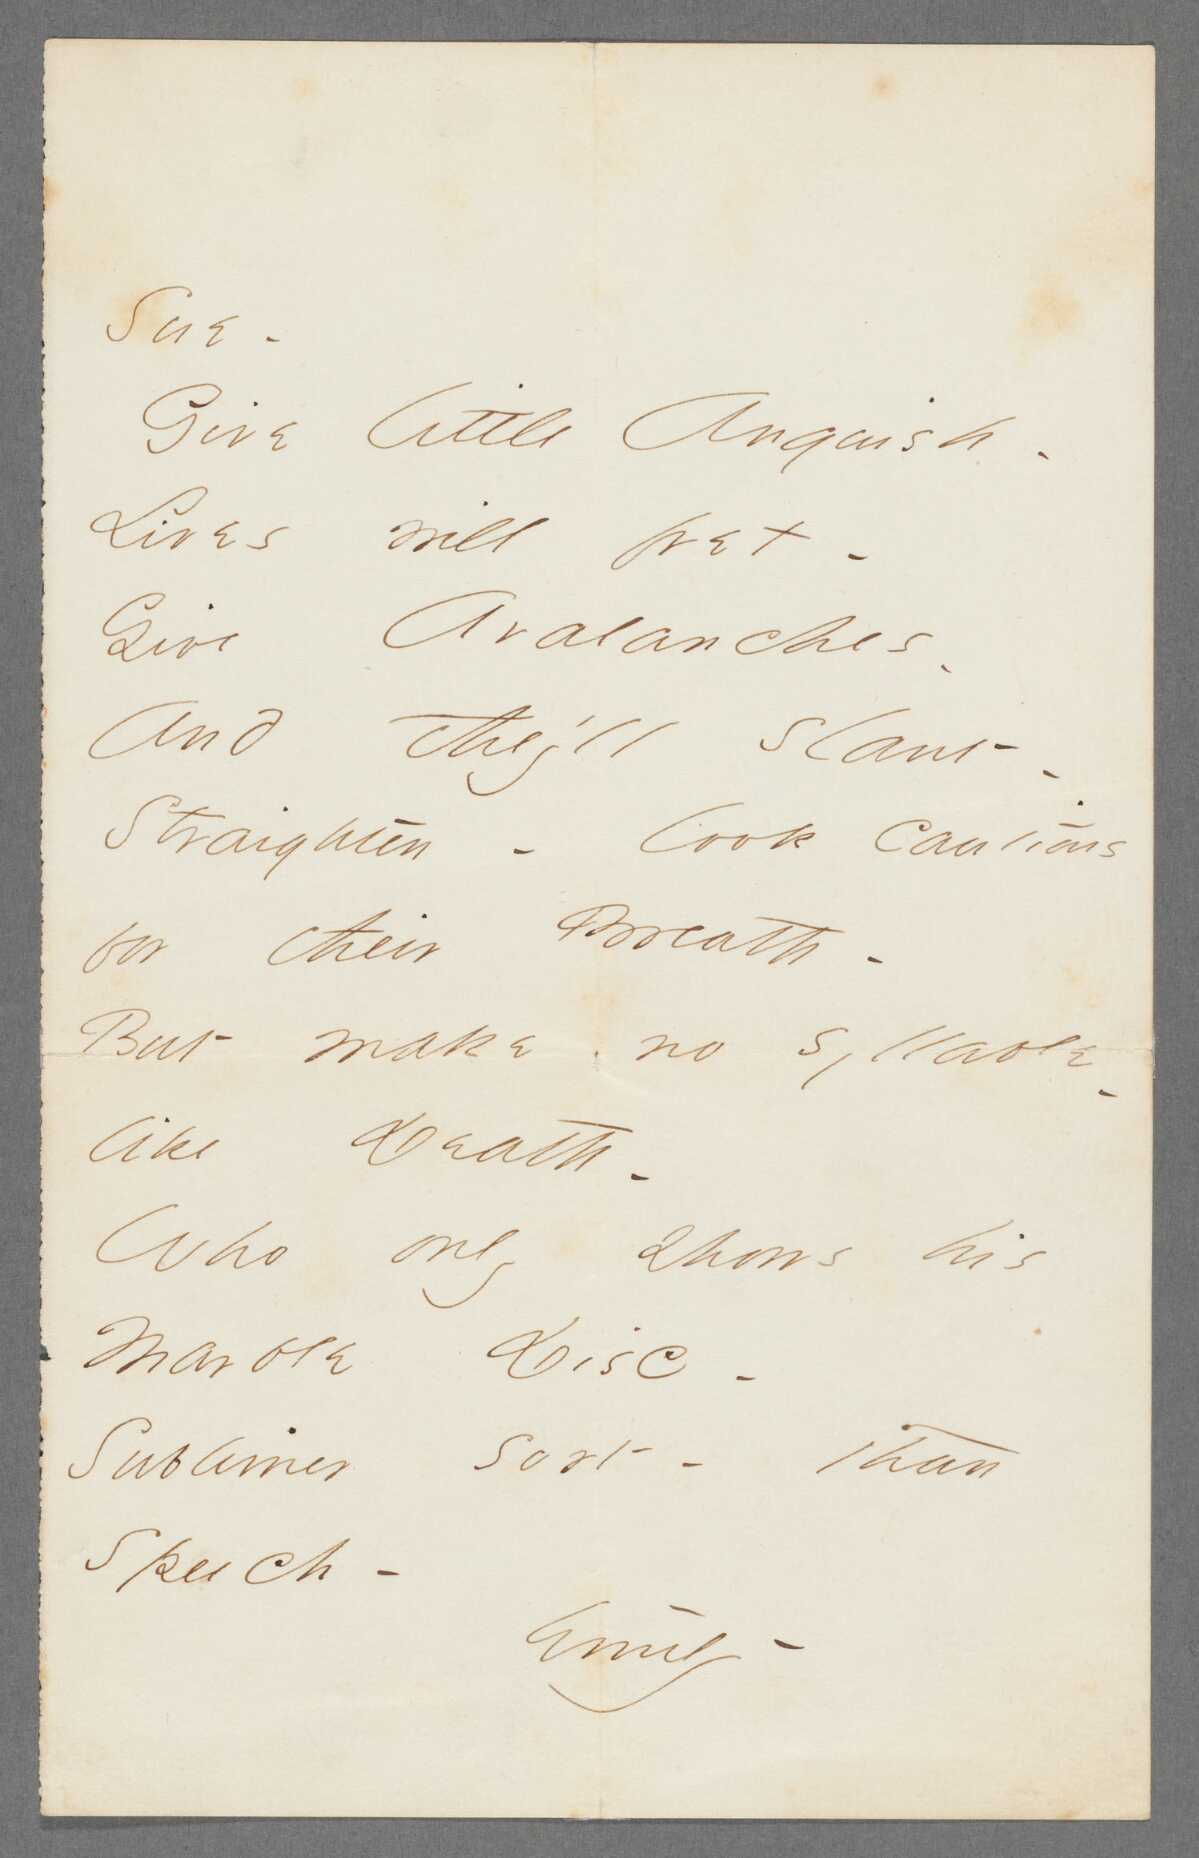 Sue -
Give little Anguish -
Lives will fret -
Give Avalanches -
And they'll slant -
Straighten - look cautious
for their Breath -
But make no syllable -
like Death -
Who only shows his
Marble Disc -
Sublimer sort - than
Speech -
Emily -